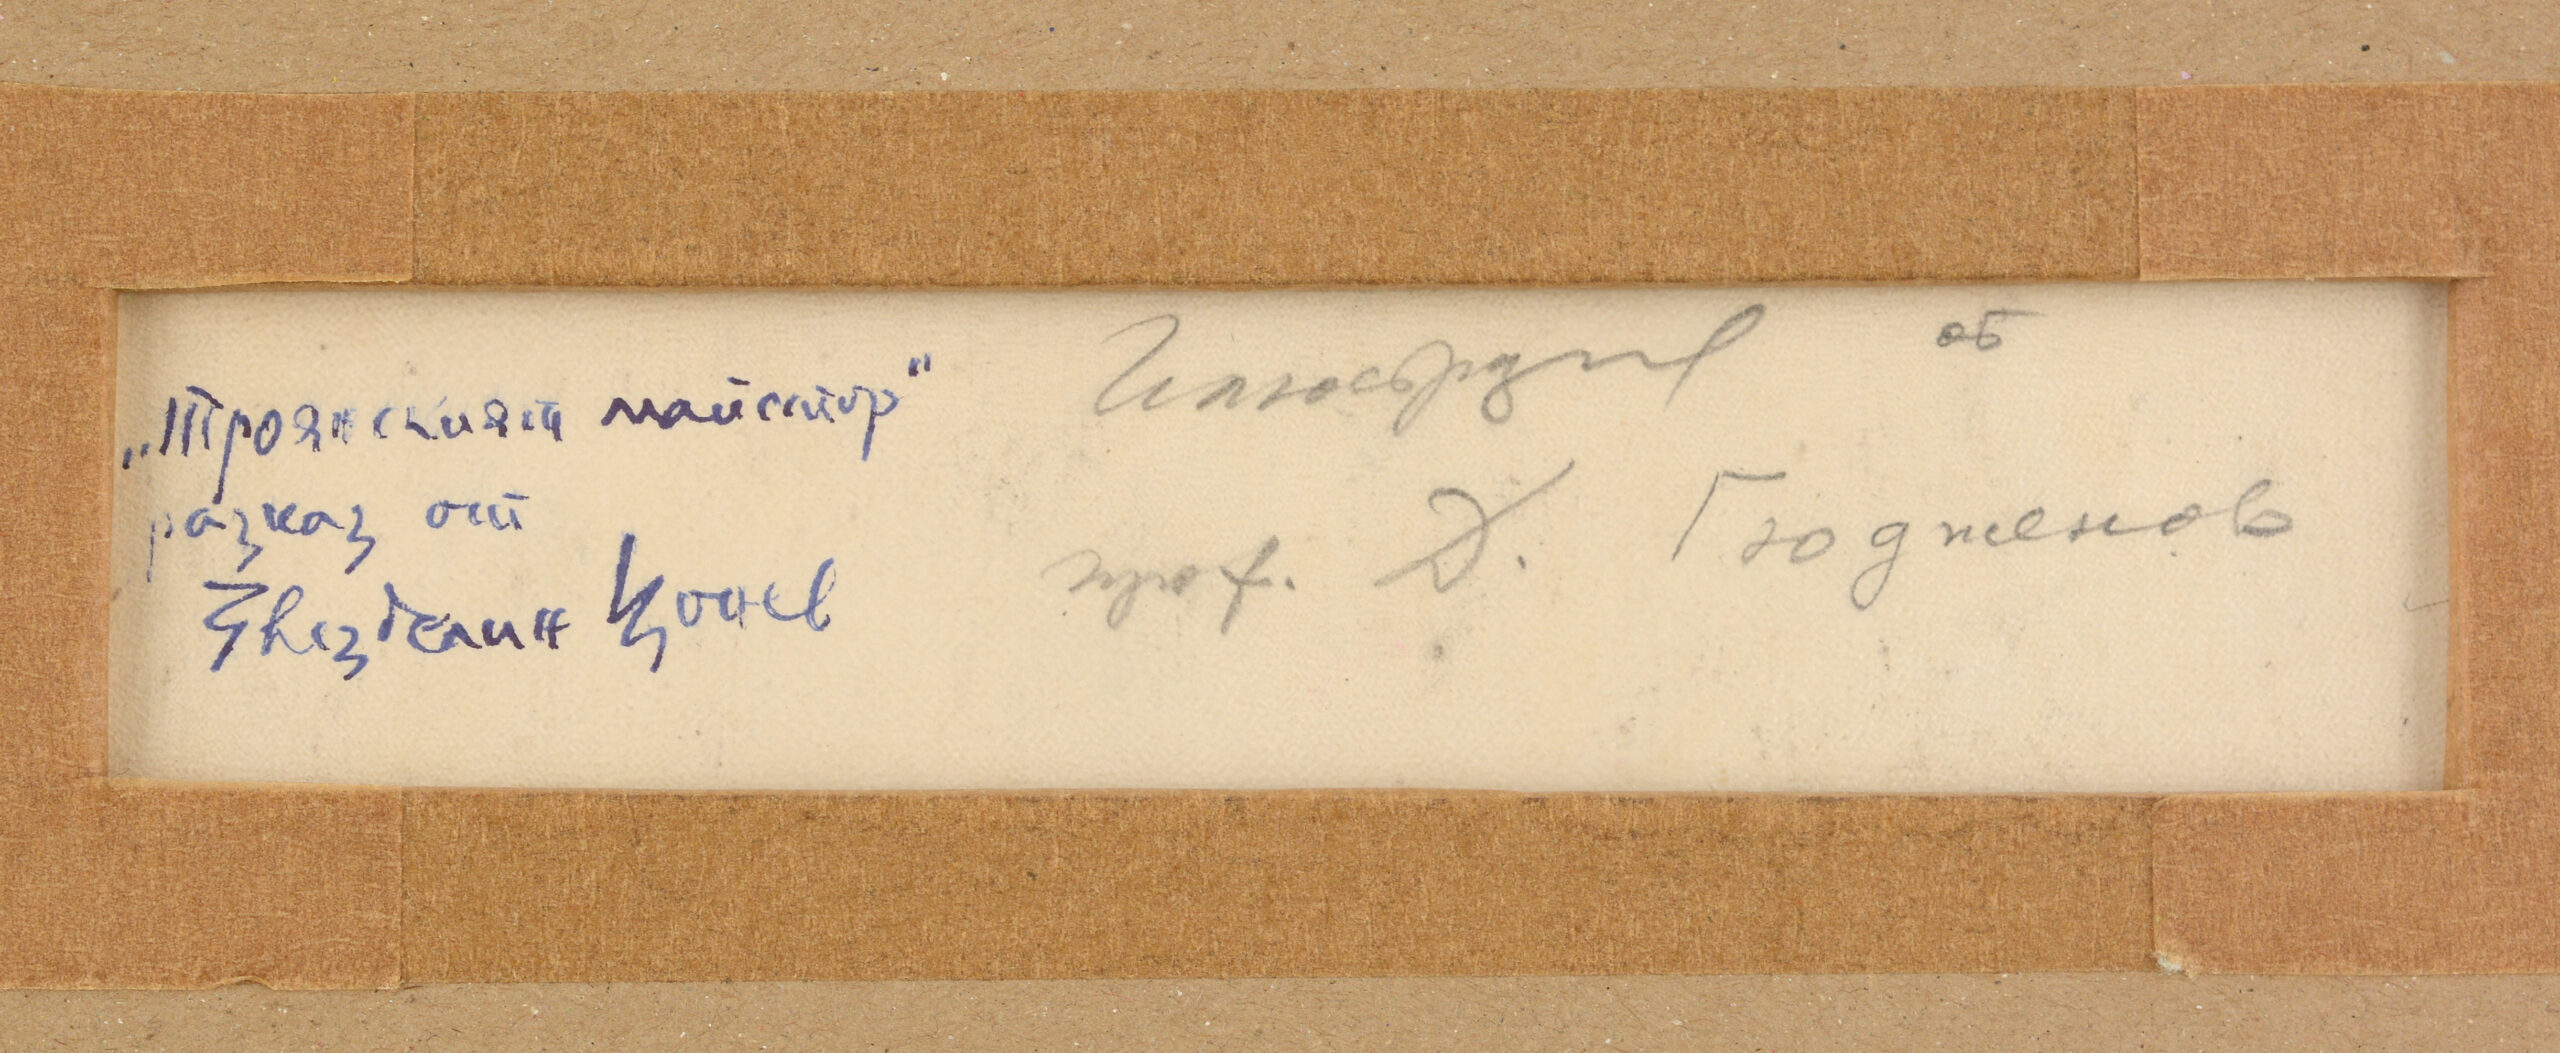 „Троянският майстор“
разказ от
Звезделин Цонев
об
проф. Д. Гюдженов